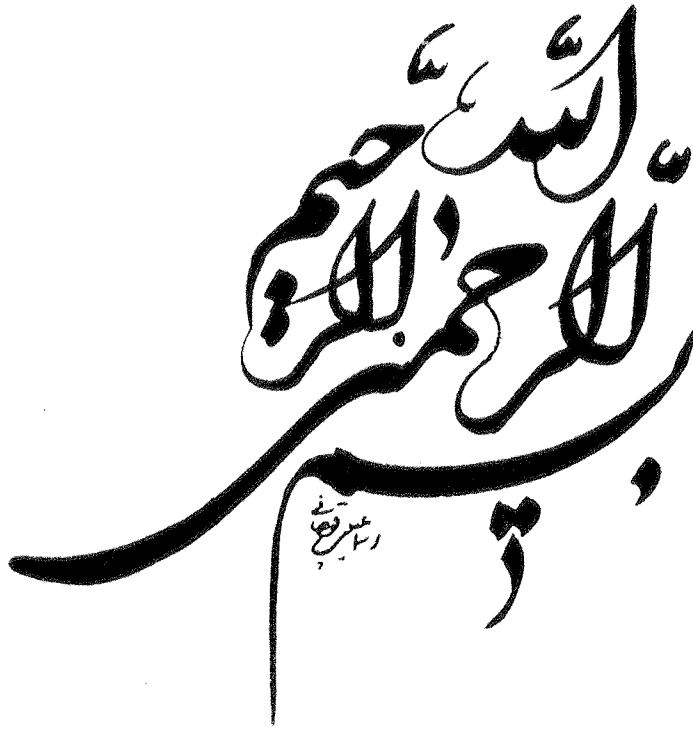 بسم
الله
الرحمن
الرحیم